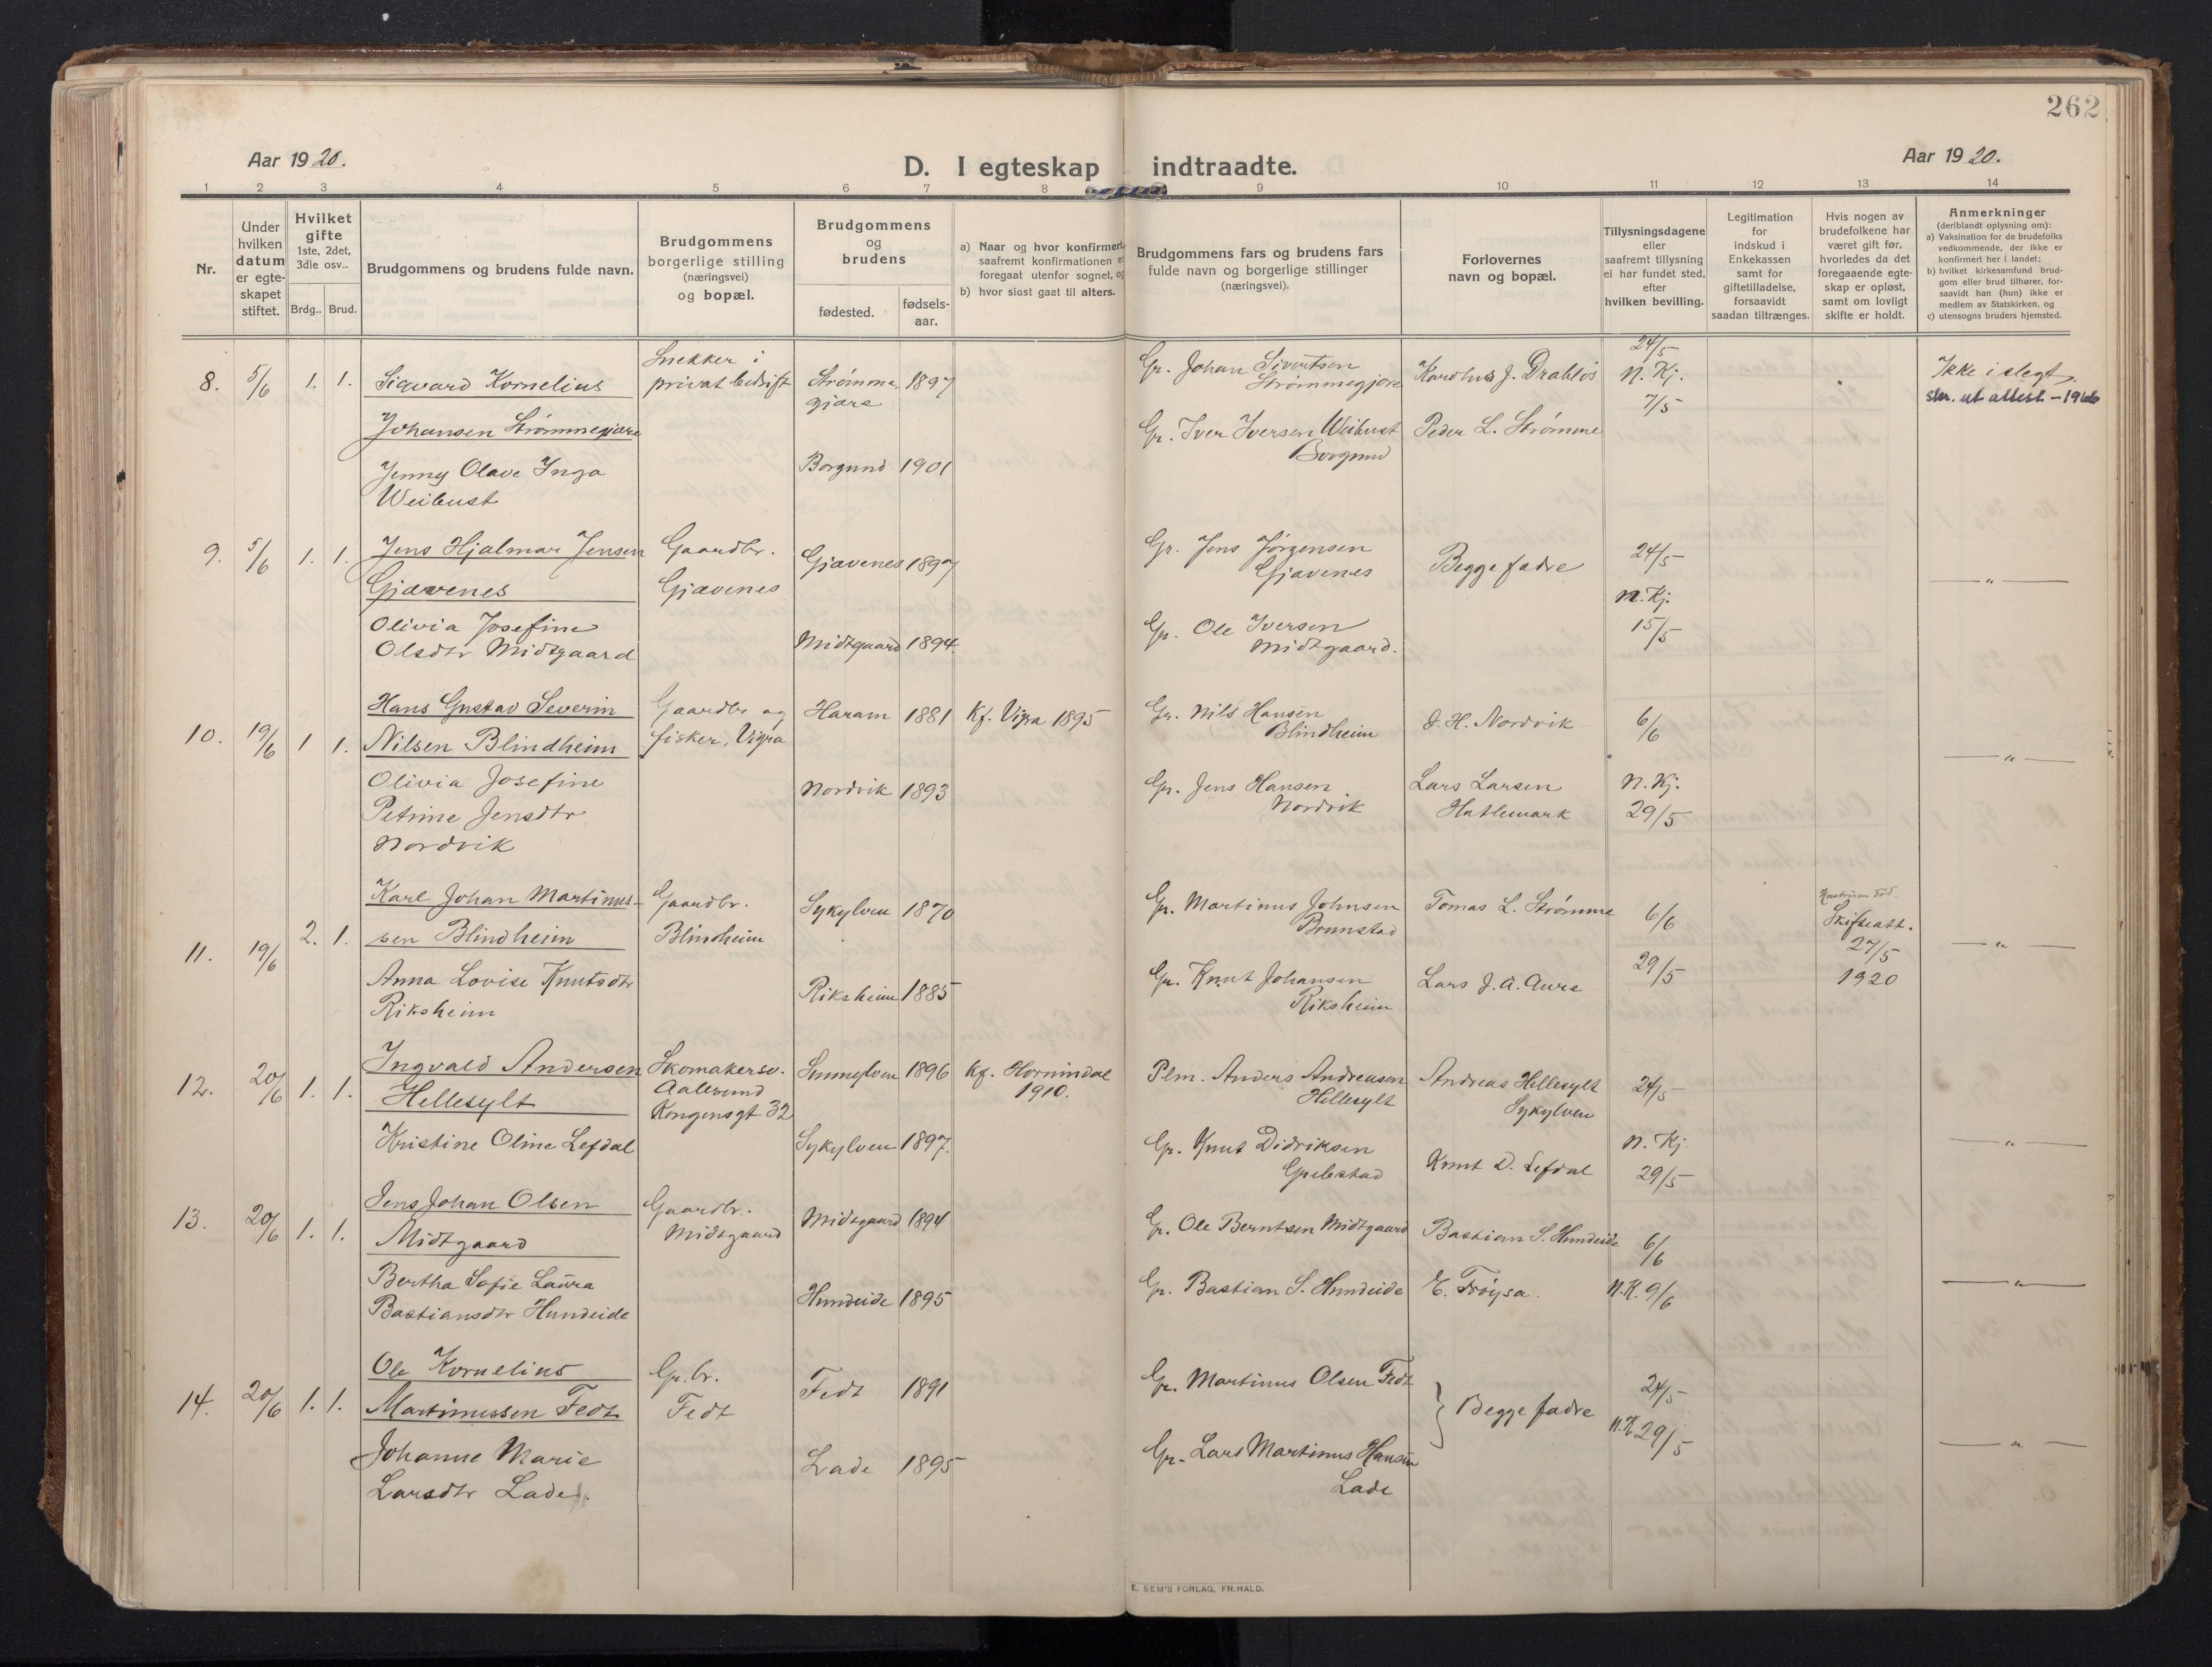 262
Aar 1920.
D. I egteskap indtraadte.
Aar 1920.
1 2 3 4 5 6 7 8 9 10 11 12 13 14
Nr.
Under
hvilken
datum
er egte-
skapet
stiftet.
Hvilket
gifte
1ste, 2det,
3die osv..
Brdg.. Brud.
Brudgommens og brudens fulde navn.
Brudgommens
borgerlige stilling
(næringsvei)
og bopæl.
Brudgommens
og
brudens
fødested.
fødsels-
aar.
a) Naar og hvor konfirmert,
saafremt konfirmationen e
foregaat utenfor sognet, og
b) hvor sidst gaat til alters.
Brudgommens fars og brudens fars
fulde navn og borgerlige stillinger
(næringsvei).
Forlovernes
navn og bopæl.
Tillysningsdagene
eller
saafremt tillysning
ei har fundet sted,
efter
hvilken bevilling.
Legitimation
for
indskud i
Enkekassen
samt for
giftetilladelse,
forsaavidt
saadan tiltrænges.
Hvis nogen av
brudefolkene har
været gift før,
hvorledes da det
foregaaende egte-
skap er opløst,
samt om lovligt
skifte er holdt.
Anmerkninger
(deriblandt oplysning om):
a) Vaksination for de brudefolks
vedkommende, der ikke er
konfirmert her i landet;
b) hvilket kirkesamfund brud-
gom eller brud tilhører, for-
saavidt han (hun) ikke er
medlem av Statskirken, og
c) utensogns bruders hjemsted.
8. 5/6 1. 1.
Sigvard Kornelius
Johansen Strømmegjære
Jenny Olave Inga
Weibust
Snekker i
privat bedrift
Strømme
gjære
1897
Borgund 1901
Gr. Johan Sivertsen
Strømmegjære
Gr. Iver Iversen Weibust
Borgund
J. Drabløs
Peder L. Strømme
24/5
N. Kj.
7/5
Ikke i slegt.
skr. ut attest - 1966
9. 5/6 1. 1.
Jens Hjalmar Jensen
Gjævenes
Olivia Josefine
Olsdtr Midtgaard
Gaardbr.
Gjævenes
Gjævenes 1897
Midtgaard 1894.
Gr. Jens Jørgensen
Gjævenes
Gr. Ole Iversen
Midtgaard.
Begge fædre
24/5
N. Kj.
15/5
— " —
10. 19/6 1 1.
Hans Gustav Severin
Nilsen Blindheim
Olivia Josefine
Petrine Jensdtr
Nordvik
Gaardbr og
fisker, Vigra
Haram 1881
Nordvik 1893
Kf. Vigra 1895
Gr. Nils Hansen
Blindheim
Gr. Jens Hansen
Nordvik
J. H. Nordvik
Lars Larsen
Hatlemark
6/6
N. Kj.
29/5
— " —
11. 19/6 2. 1.
Karl Johan Martinus-
sen Blindheim
Anna Lovise Knutsdtr
Riksheim
Gaardbr.
Blindheim
Sykylven 1870
Riksheim 1885
Gr. Martinus Johnsen
Brunstad
Gr. Knut Johansen
Riksheim
Tomas L. Strømme
Lars J. A. Aure
6/6
29/5
Hustruen død.
Skifteatt.
27/5
1920
— " —
12. 20/6 1. 1.
Ingvald Andersen
Hellesylt
Kristine Oline Lefdal
Skomakersv.
Aalesund
Kongensgt 32
Sunnylven 1896
Sykylven 1897.
Kf. Hornindal
1910.
Plm. Anders Andreasen
Hellesylt
Gr. Knut Didriksen
Grebstad
Andreas Hellesylt
Sykylven
Knut D. Lefdal
24/5
N. Kj.
29/5
— " —
13. 20/6 1. 1.
Jens Johan Olsen
Midtgaard
Bertha Sofie Laura
Bastiansdtr Hundeide
Gaardbr.
Midtgaard
Midtgaard 1894
Hundeide 1895
Gr. Ole Berntsen Midtgaard
Gr. Bastian S. Hundeide
Bastian S. Hundeide
E. Frøysa.
6/6
N. K. 9/6
— " —
14. 20/6 1. 1.
Ole Kornelius
Martinussen Fedt
Johanne Marie
Larsdtr Lade.
Gr. br.
Fedt
Fedt 1891
Lade 1895
Gr. Martinus Olsen Fedt
Gr. Lars Martinus Hansen
Lade
} Begge fædre
24/5
N. K 29/5
— " —
E. SEM'S FORLAG, FR.HALD.